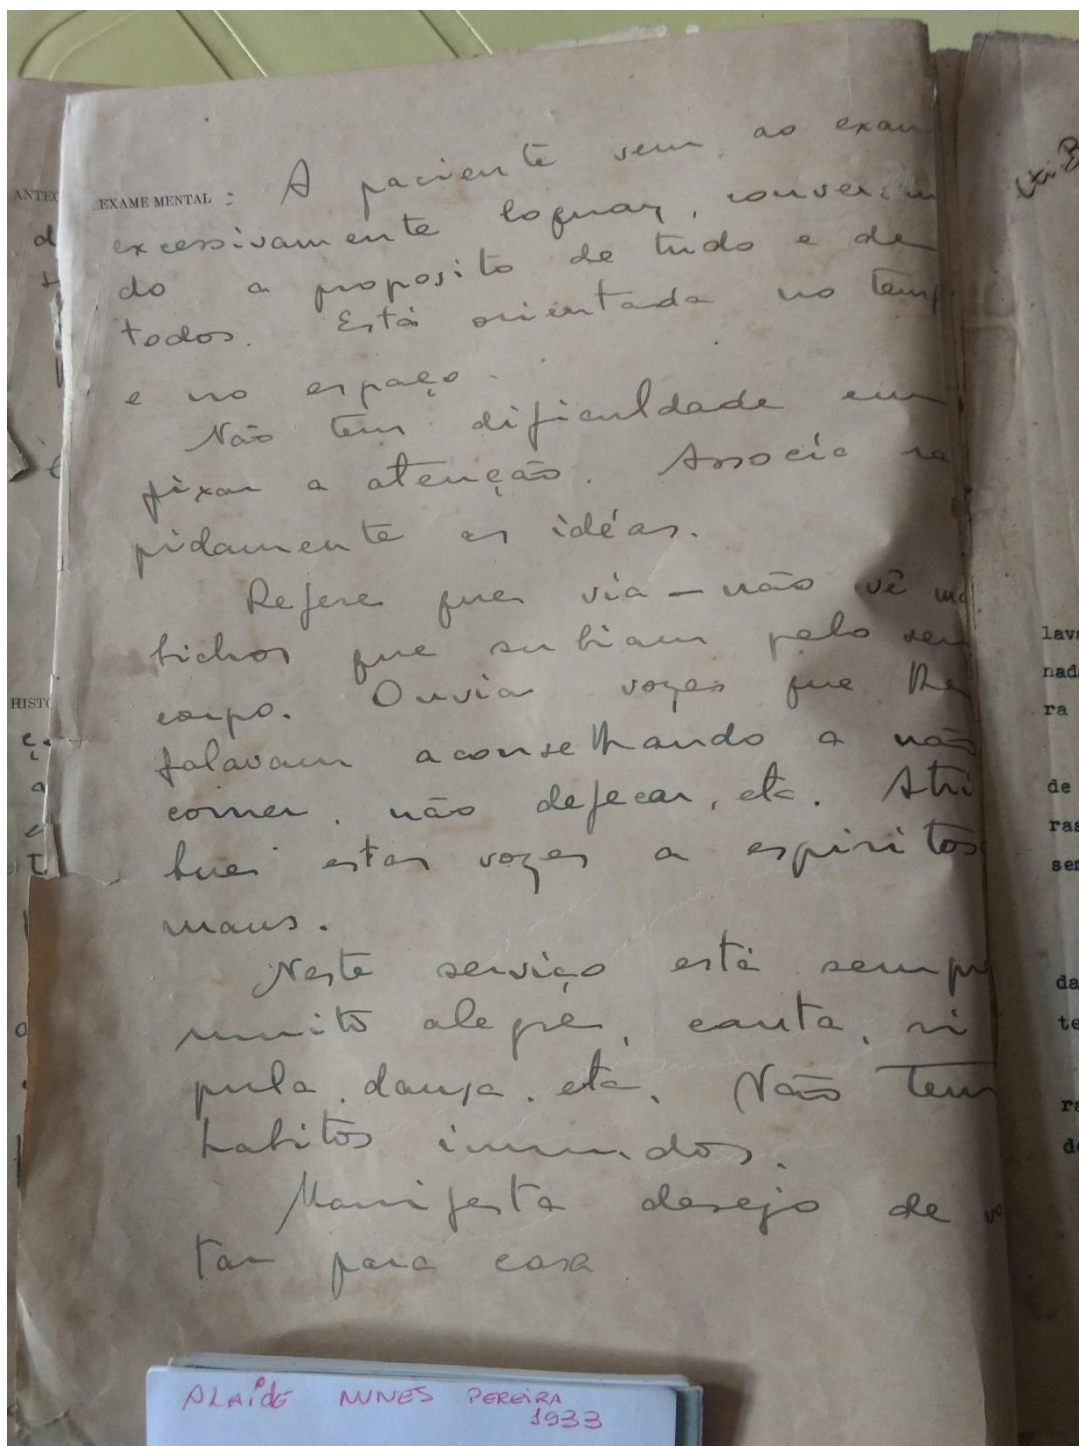 EXAME MENTAL : A paciente vem ao exam
excessivamente loquaz, conversan
do a proposito de tudo e de
todos. Está orientada no temp
e no espaço.
Não tem dificuldade em
fixar a atenção. Associa ra
pidamente as idéas.
Refere que via – não vê ma
bichos que subiam pelo seu
corpo. Ouvia vozes que lhe
falavam aconselhando a não
comer, não defecar, etc. Atri
bue estas vozes a espiritos
maus.
Neste serviço está sempr
muito alegre, canta, ri
pula, dansa, etc. Não tem
habitos imundos.
Manifesta desejo de vo
tar para casa
ALAíDE NUNES PEREIRA
1933
ANTEC
HISTO
lava
nad
ra
de
ras
sen
da
te
ra
de